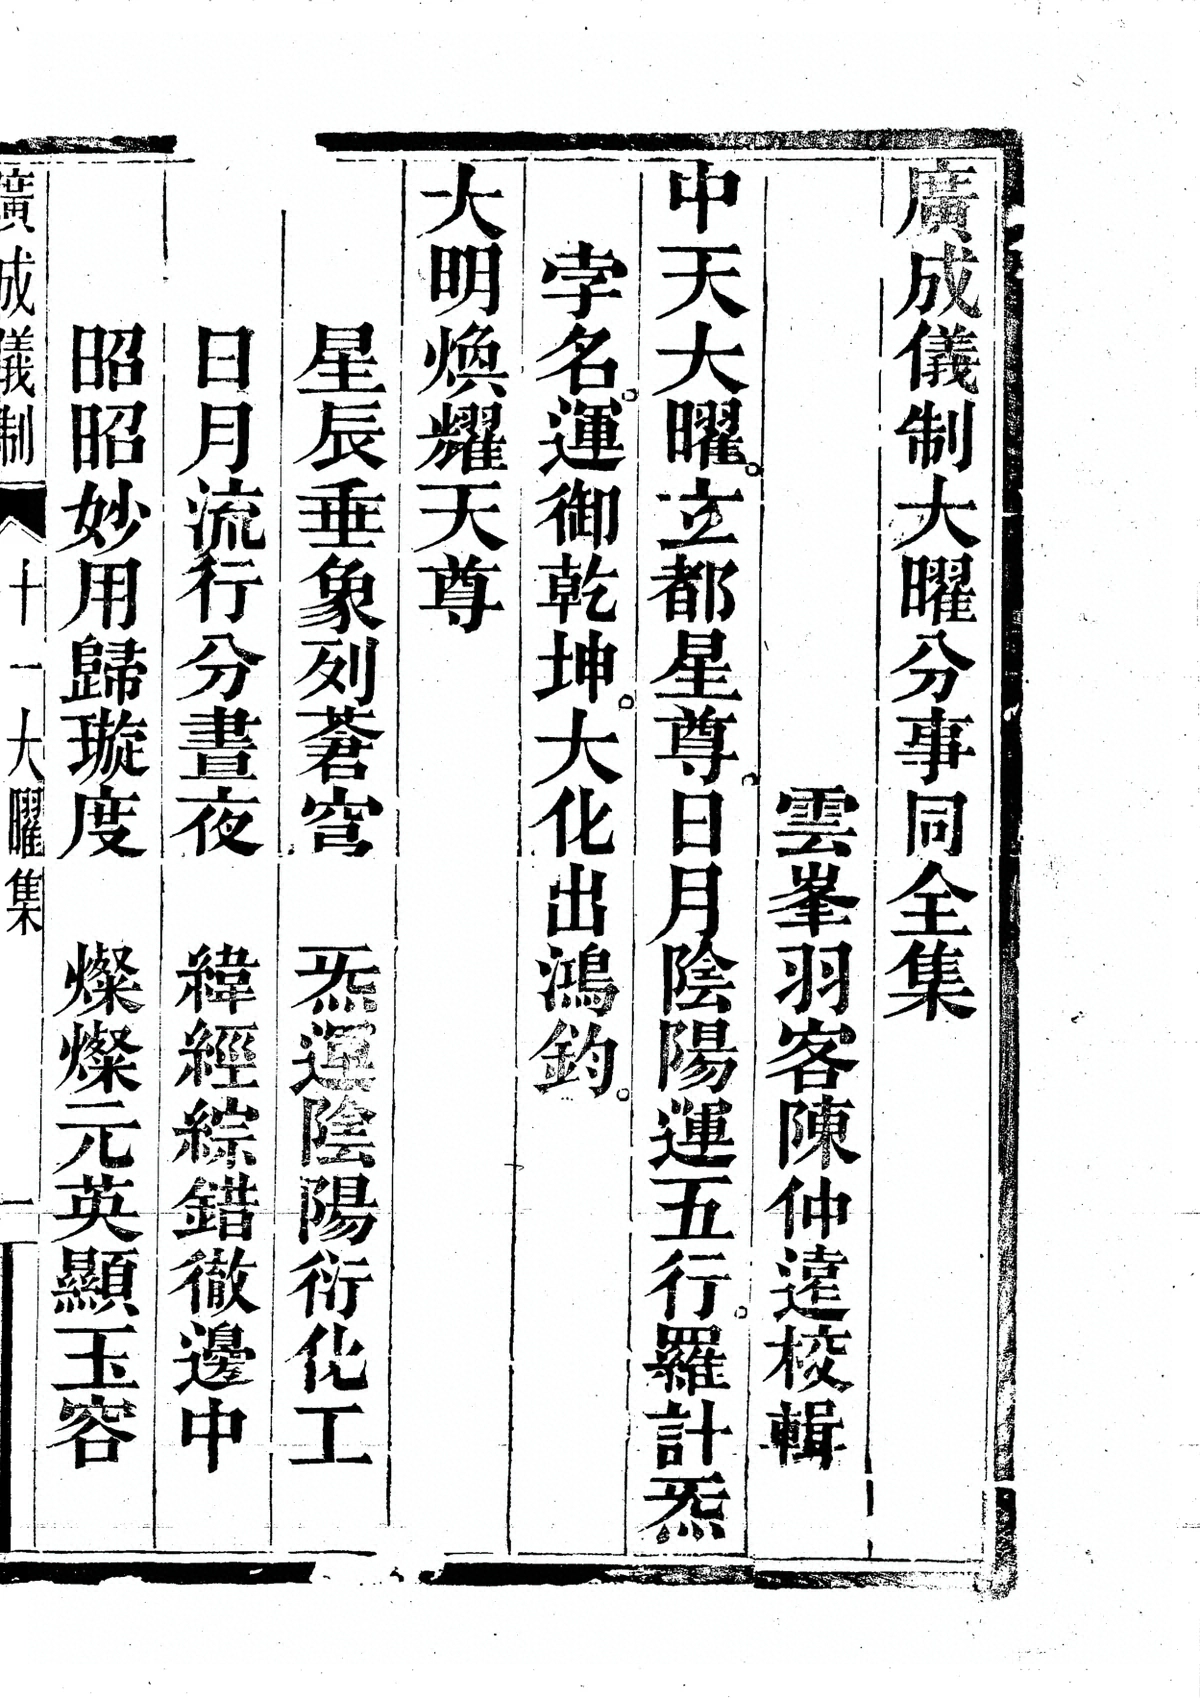 廣成儀制大曜分事同全集
雲峯羽客陳仲遠校輯
中天大曜。立都星尊。日月陰陽運五行。羅計炁
孛名。運御乾坤。大化出鴻鈞。
大明煥耀天尊
星辰垂象列蒼穹　炁運陰陽衍化工
日月流行分晝夜　緯經綜錯徹邊中
昭昭妙用歸璇度　燦燦元英顯玉容
廣成儀制　十一大曜集　一